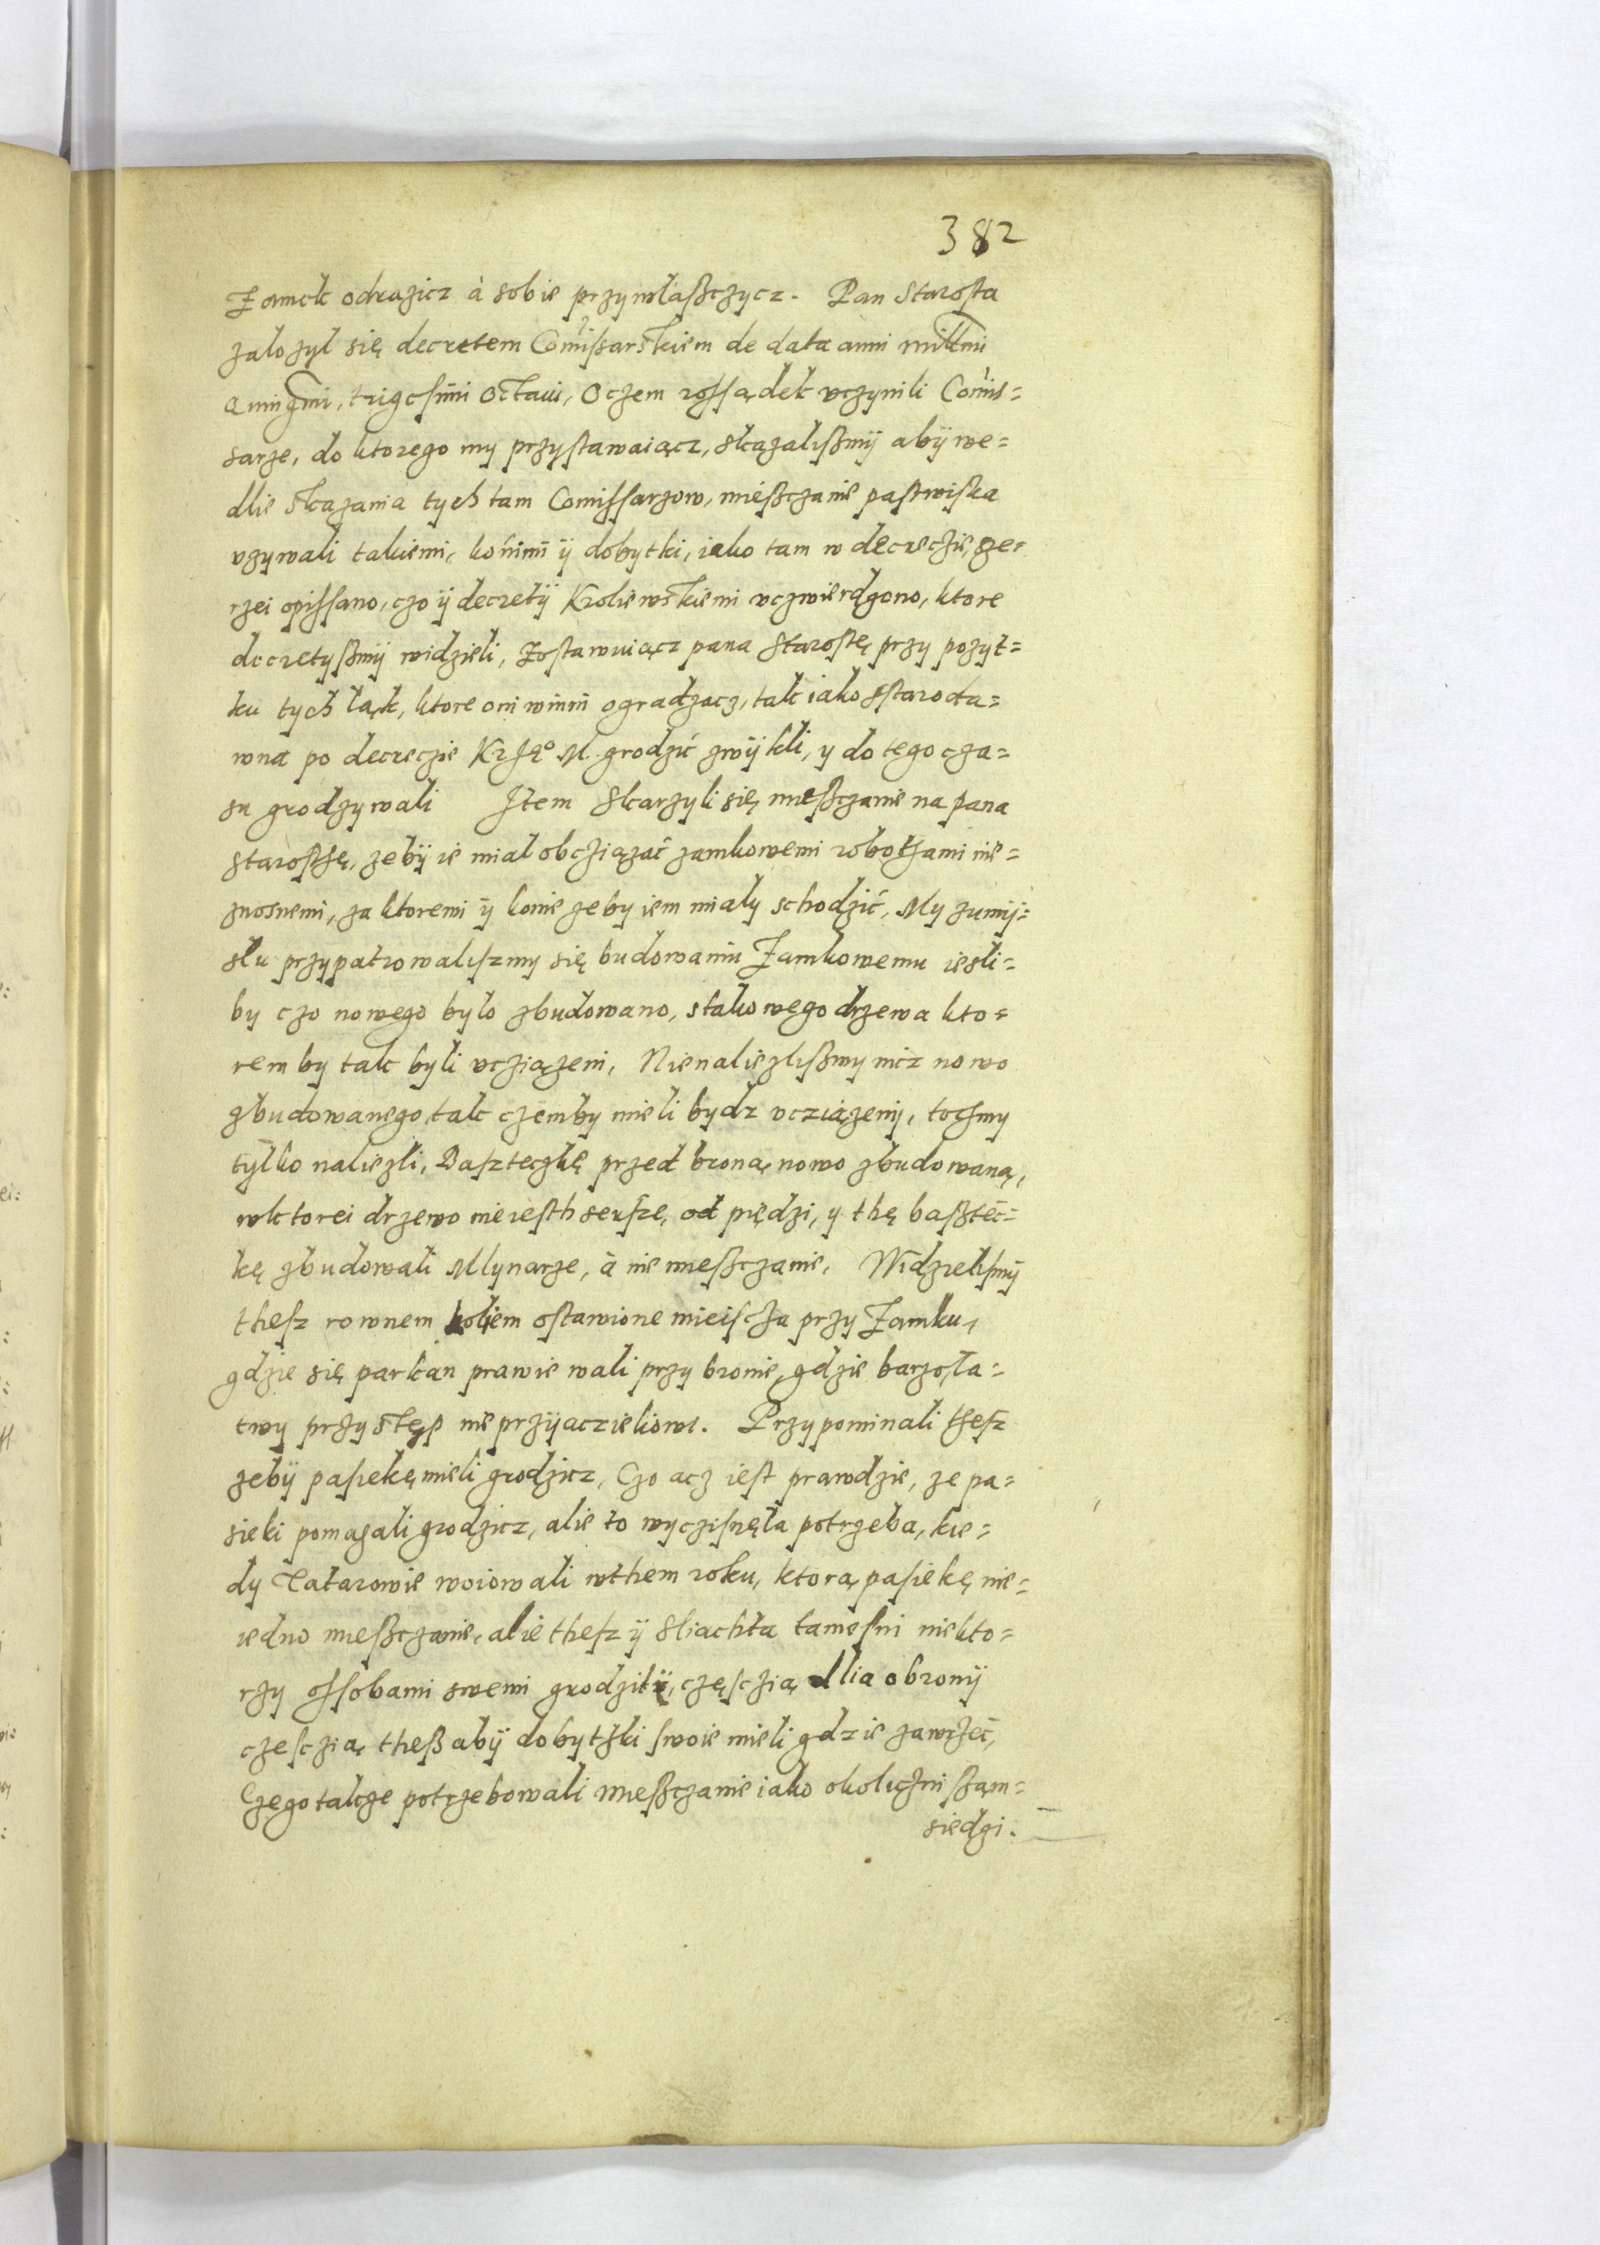 382
Zamek odrazicz à sobie przywłaszczycz. Pan Starosta
założył się decretem Comissarskiem de data anni millmi
quingmi, trigesimi octaui, o czem rossądek vczynili Comis=
sarze, do ktorego my przystawaiącz, skazaliszmÿ abÿ we=
dlie skazania tych tam Comissarzow, mieszczanie pastwiska
vzywali takiemi, konimi ÿ dobytki, iako tam w decreczie, sze=
rzei opissano, czo ÿ decretÿ Kroliewskiemi vczwierdzono, ktore
decretyszmÿ widzieli, Zostawuiącz pana Starostę przy pozyt=
ku tych łąk, ktore oni winni ogradzacz, tak iako sstaroda=
wna po decreczie Kr Jego M. grodzić zwÿkli, y do tego cza=
su grodzywali Item Skarzyli się mieszczanie na pana
starosthę, zebÿ ie miał obcziązać zamkowemi robothami nie=
znosnemi, za ktoremi ÿ konie zeby iem miały schodzić, My zumÿ=
słu przypatrowaliszmy się budowaniu Zamkowemu iesli=
by czo nowego było zbudowano, stakowego drzewa kto=
rem by tak byli vcziązeni, Nienaliezliszmy nicz nowo
zbudowanego, tak czemby mieli bydz vcziązeny, tochmy
tylko naliezli, Baszteczkę przed broną nowo zbudowaną,
wktorei drzewo nie iesth serszę, od piędzi, y thę basztec=
kę zbudowali Młynarze, à nie mieszczanie, Widzielismÿ
thesz rownem koliem ostawione mieiscza przy Zamku,
gdzie się parkan prawie wali przy bronie, gdzie barzo ła=
twy przystęp nieprzÿiaczieliowi. Przypominali thesz
zebÿ pasiekę mieli grodzicz, Czo acz iest prawdzie, ze pa=
sieki pomagali grodzicz, alie to wyczisnęła potrzeba, kie=
dy Tatarowie woiowali wthem roku, ktorą pasiekę nie=
iedno mieszczanie, alie thesz ÿ Sliachta tamesni niekto=
rzy ossobami swemi grodzilÿ, częsczią dlia obronÿ
czesczią thesz abÿ dobythki swoie mieli gdzie zawrzeć,
Czego takze potrzebowali mieszczanie iako okoliczni sząm=
siedzi.